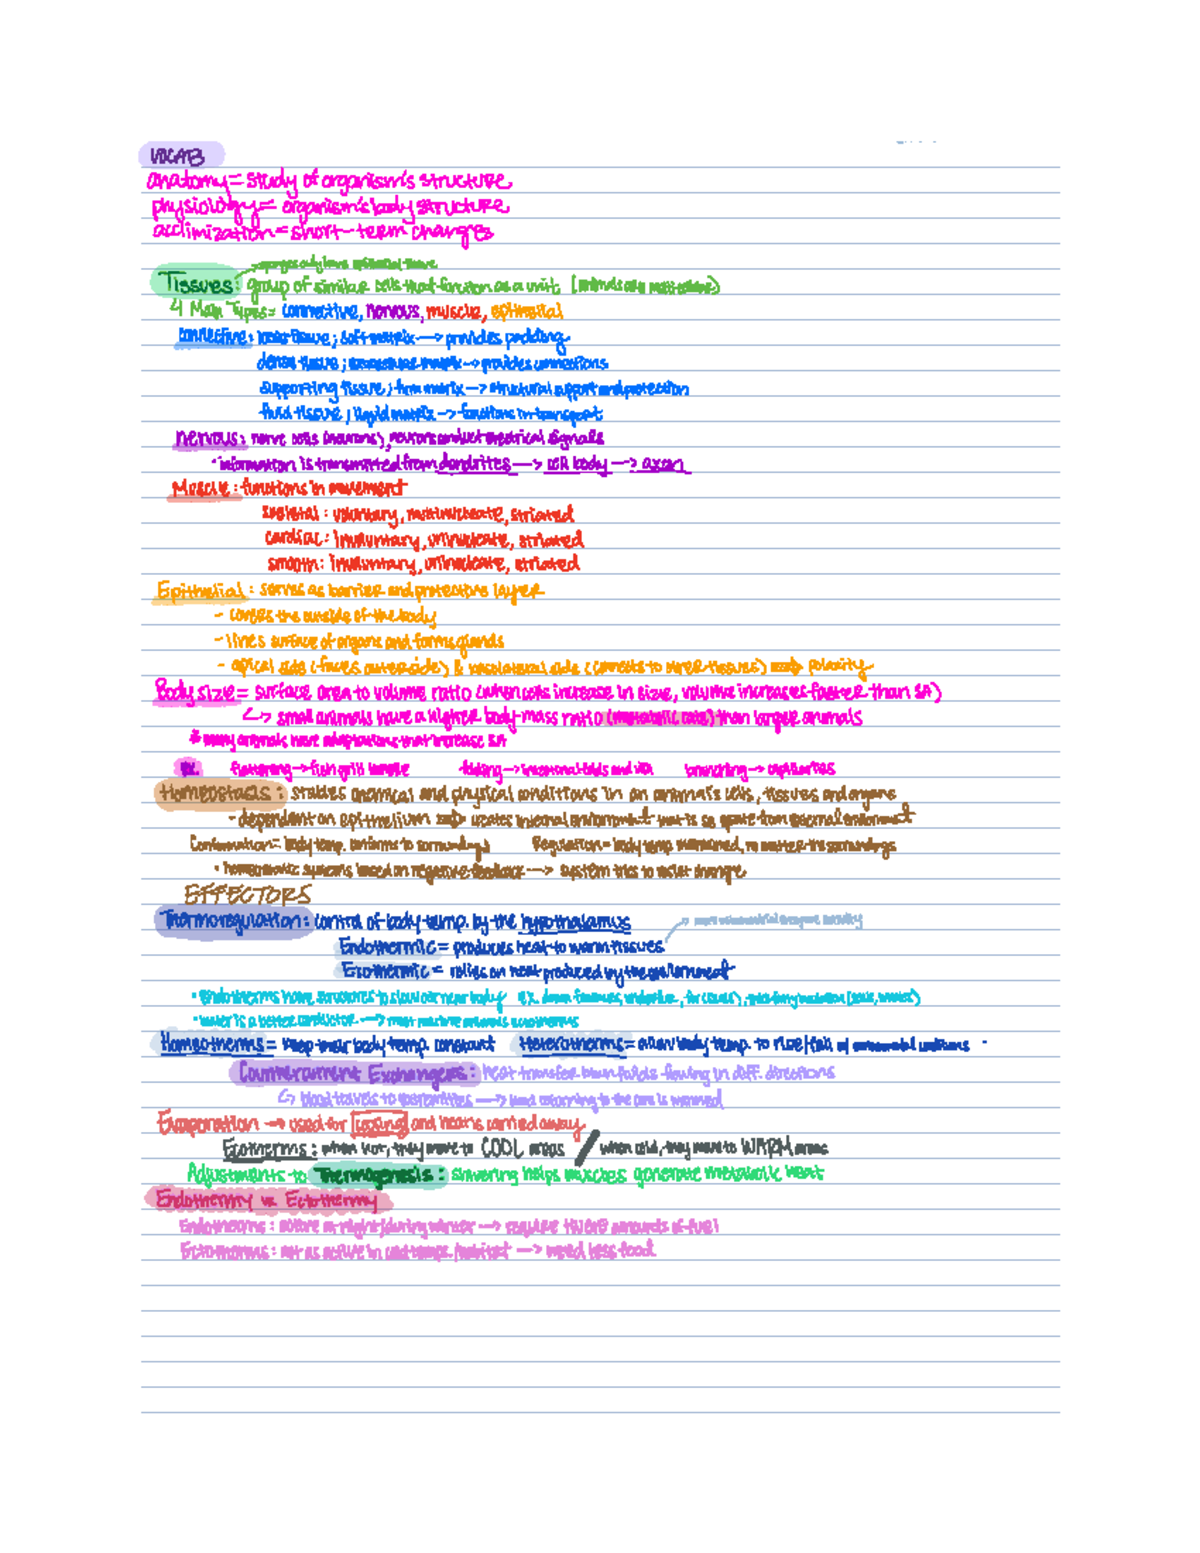 VOCAB
anatomy = study of organism's structure
physiology = organism's body structure
acclimization = short-term changes
sponges only have epithelial tissue
Tissues: group of similar cells that function as a unit (animals are multicellular)
4 Main Types = connective, nervous, muscle, epithelial
connective: loose tissue; soft matrix --> provides padding
dense tissue; matrix --> provides connections
supporting tissue; firm matrix --> structural support and protection
fluid tissue; liquid matrix --> functions in transport
nervous: nerve cells (neurons), neurons conduct electrical signals
• information is transmitted from dendrites --> cell body --> axon
Muscle: functions in movement
skeletal: voluntary, multinucleate, striated
cardiac: involuntary, uninucleate, striated
smooth: involuntary, uninucleate, striated
Epithelial: serves as barrier and protective layer
- covers the outside of the body
- lines surface of organs and forms glands
- apical side (faces outer side) & basolateral side (connects to inner tissues) polarity
Body size = surface area to volume ratio (when cells increase in size, volume increases faster than SA)
↳ small animals have a higher body-mass ratio (metabolic rate) than larger animals
* many animals have adaptations that increase SA
ex. flattening -> fish gill lamellae folding -> intestinal folds and villi branching -> capillaries
Homeostasis: stables chemical and physical conditions in an animal's cells, tissues and organs
- dependent on epithelium creates internal environment that is separate from external environment
Conformation = body temp. conforms to surroundings Regulation = body temp maintained, no matter the surroundings
• homeostatic systems based on negative feedback --> system tries to resist change
EFFECTORS
Thermoregulation: control of body temp. by the hypothalamus
Endothermic = produces heat to warm tissues
Exothermic = relies on heat produced by the environment
• Endotherms have structures to slow air near body ex. down feathers,
• water is a better conductor --> most marine animals ectotherms
Homeotherms = keep their body temp. constant Heterotherms = allow body temp. to rise/fall
Countercurrent Exchangers: heat transfer btwn fluids flowing in diff. directions
↳ blood travels to extremities --> blood returning to the core is warmed
Evaporation -> used for cooling and heat is carried away
Ectotherms: when hot, they move to COOL areas / when cold, they move to WARM areas
Adjustments to Thermogenesis: shivering helps muscles generate metabolic heat
Endothermy vs. Ectothermy
Endotherms: active at night/during winter --> require HUGE amounts of fuel
Ectotherms: not as active in cold temps./habitat --> need less food